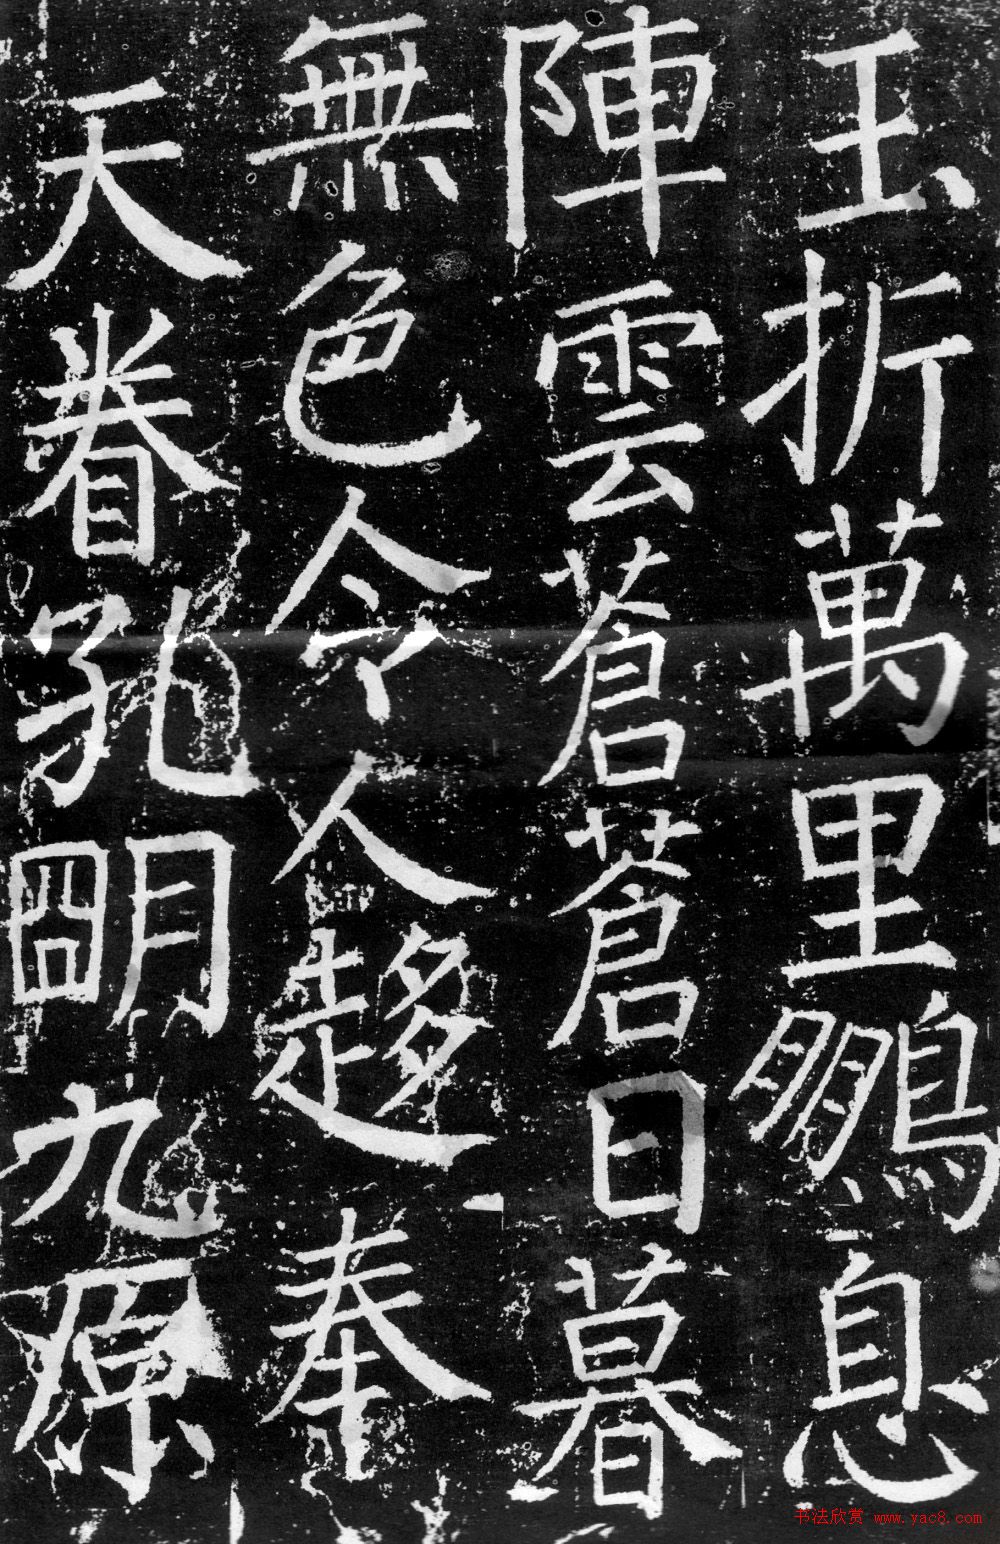 玉折萬里鵬息
陣雲蒼蒼日暮
無色令人趍奉
天眷孔明九原
书法欣赏 www.yac8.com